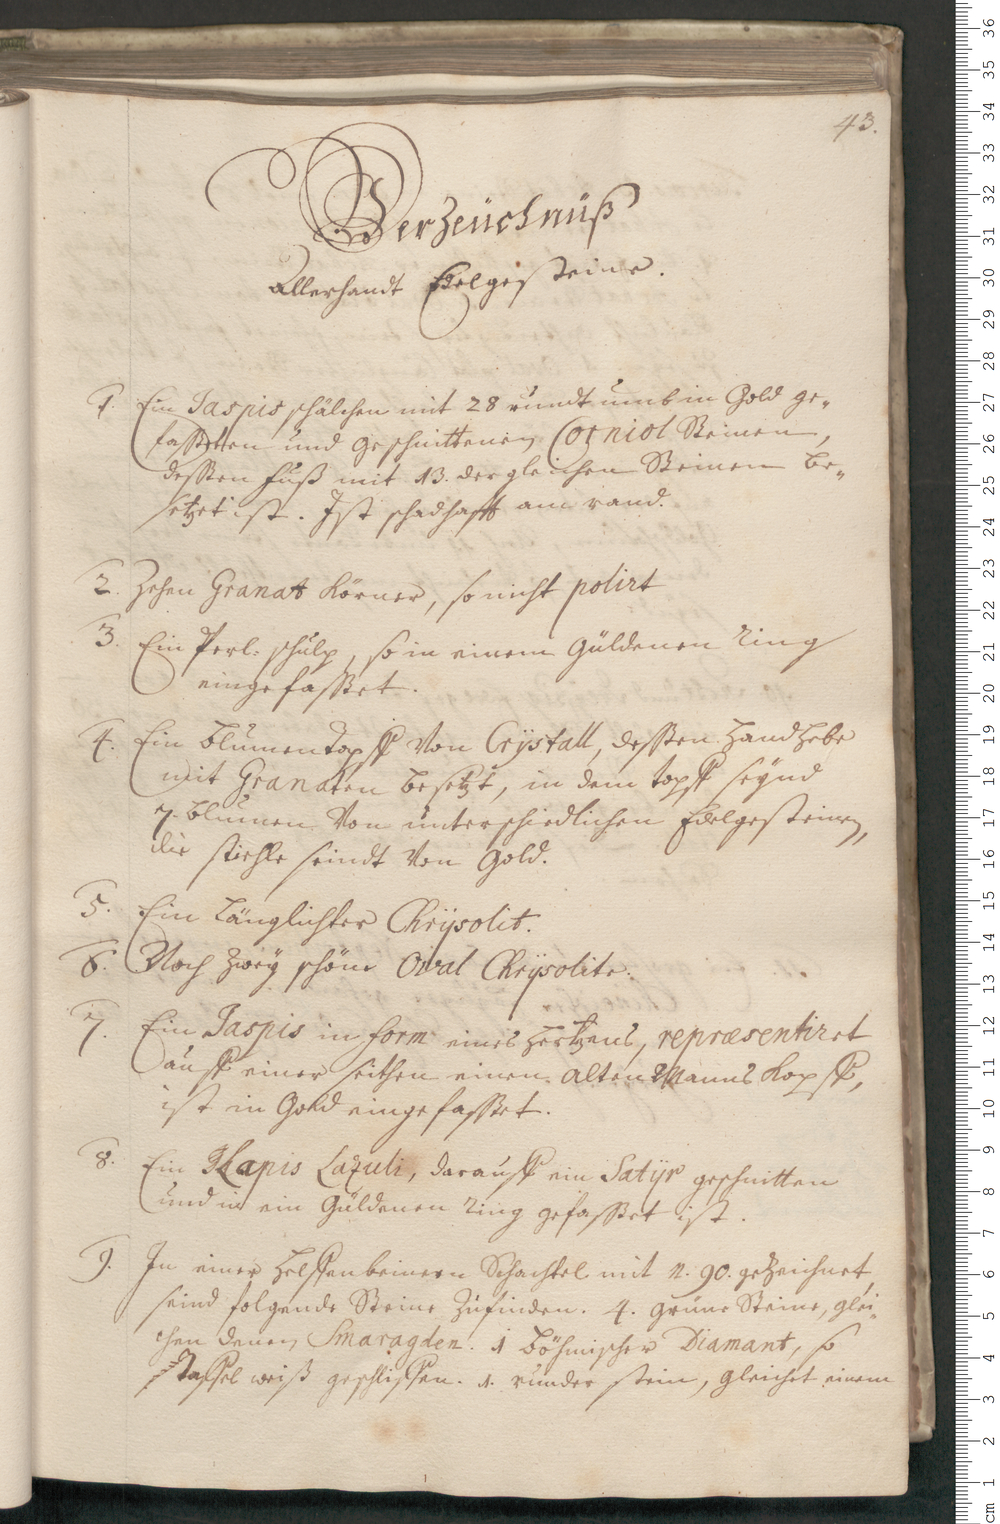 43.
Verzeüchnüß
Allerhandt Edelgesteine.
1. Ein Jaspis schälchen mit 28 rundt umb in Gold ge„
faßeten und geschnittenen Corniol Steinen,
deßen fuß mit 13. dergleichen Steinen be„
setzet ist. Ist schadhafft am rand.
2. Zehen Granat Körner, so nicht polirt
3. Ein Perl: schulp, so in einem Güldenen Ring
eingefaßet.
4. Ein blumentopff von Crÿstall, deßen handhebe
mit Granaten besetzt, in dem topff seÿnd
7. blumen von unterschiedlichen Edelgesteinen,
die stiehle seindt von Gold.
5. Ein Länglichter Chrÿsolit.
6. Noch zweÿ schöne Oval Chrÿsolite.
7. Ein Jaspis in form eines hertzens, repræsentiret
auff einer seithen einen alten Manns Kopff,
ist in Gold eingefaßet.
8. Ein Lapis Lazuli, darauff ein Satÿr geschnitten
und in ein Güldenen Ring gefaßet ist.
9. In einer helffenbeinern Schachtel mit N. 90. gezeichnet,
seind folgende Steine zufinden. 4. grüne Steine, glei„
chen denen Smaragden. 1 böhmischer Diamant, so
taffel weiß geschliffen. 1. runder stein, gleichet einem
36
35
34
33
32
31
30
29
28
27
26
25
24
23
22
21
20
19
18
17
16
15
14
13
12
11
10
9
8
7
6
5
4
3
2
1
cm